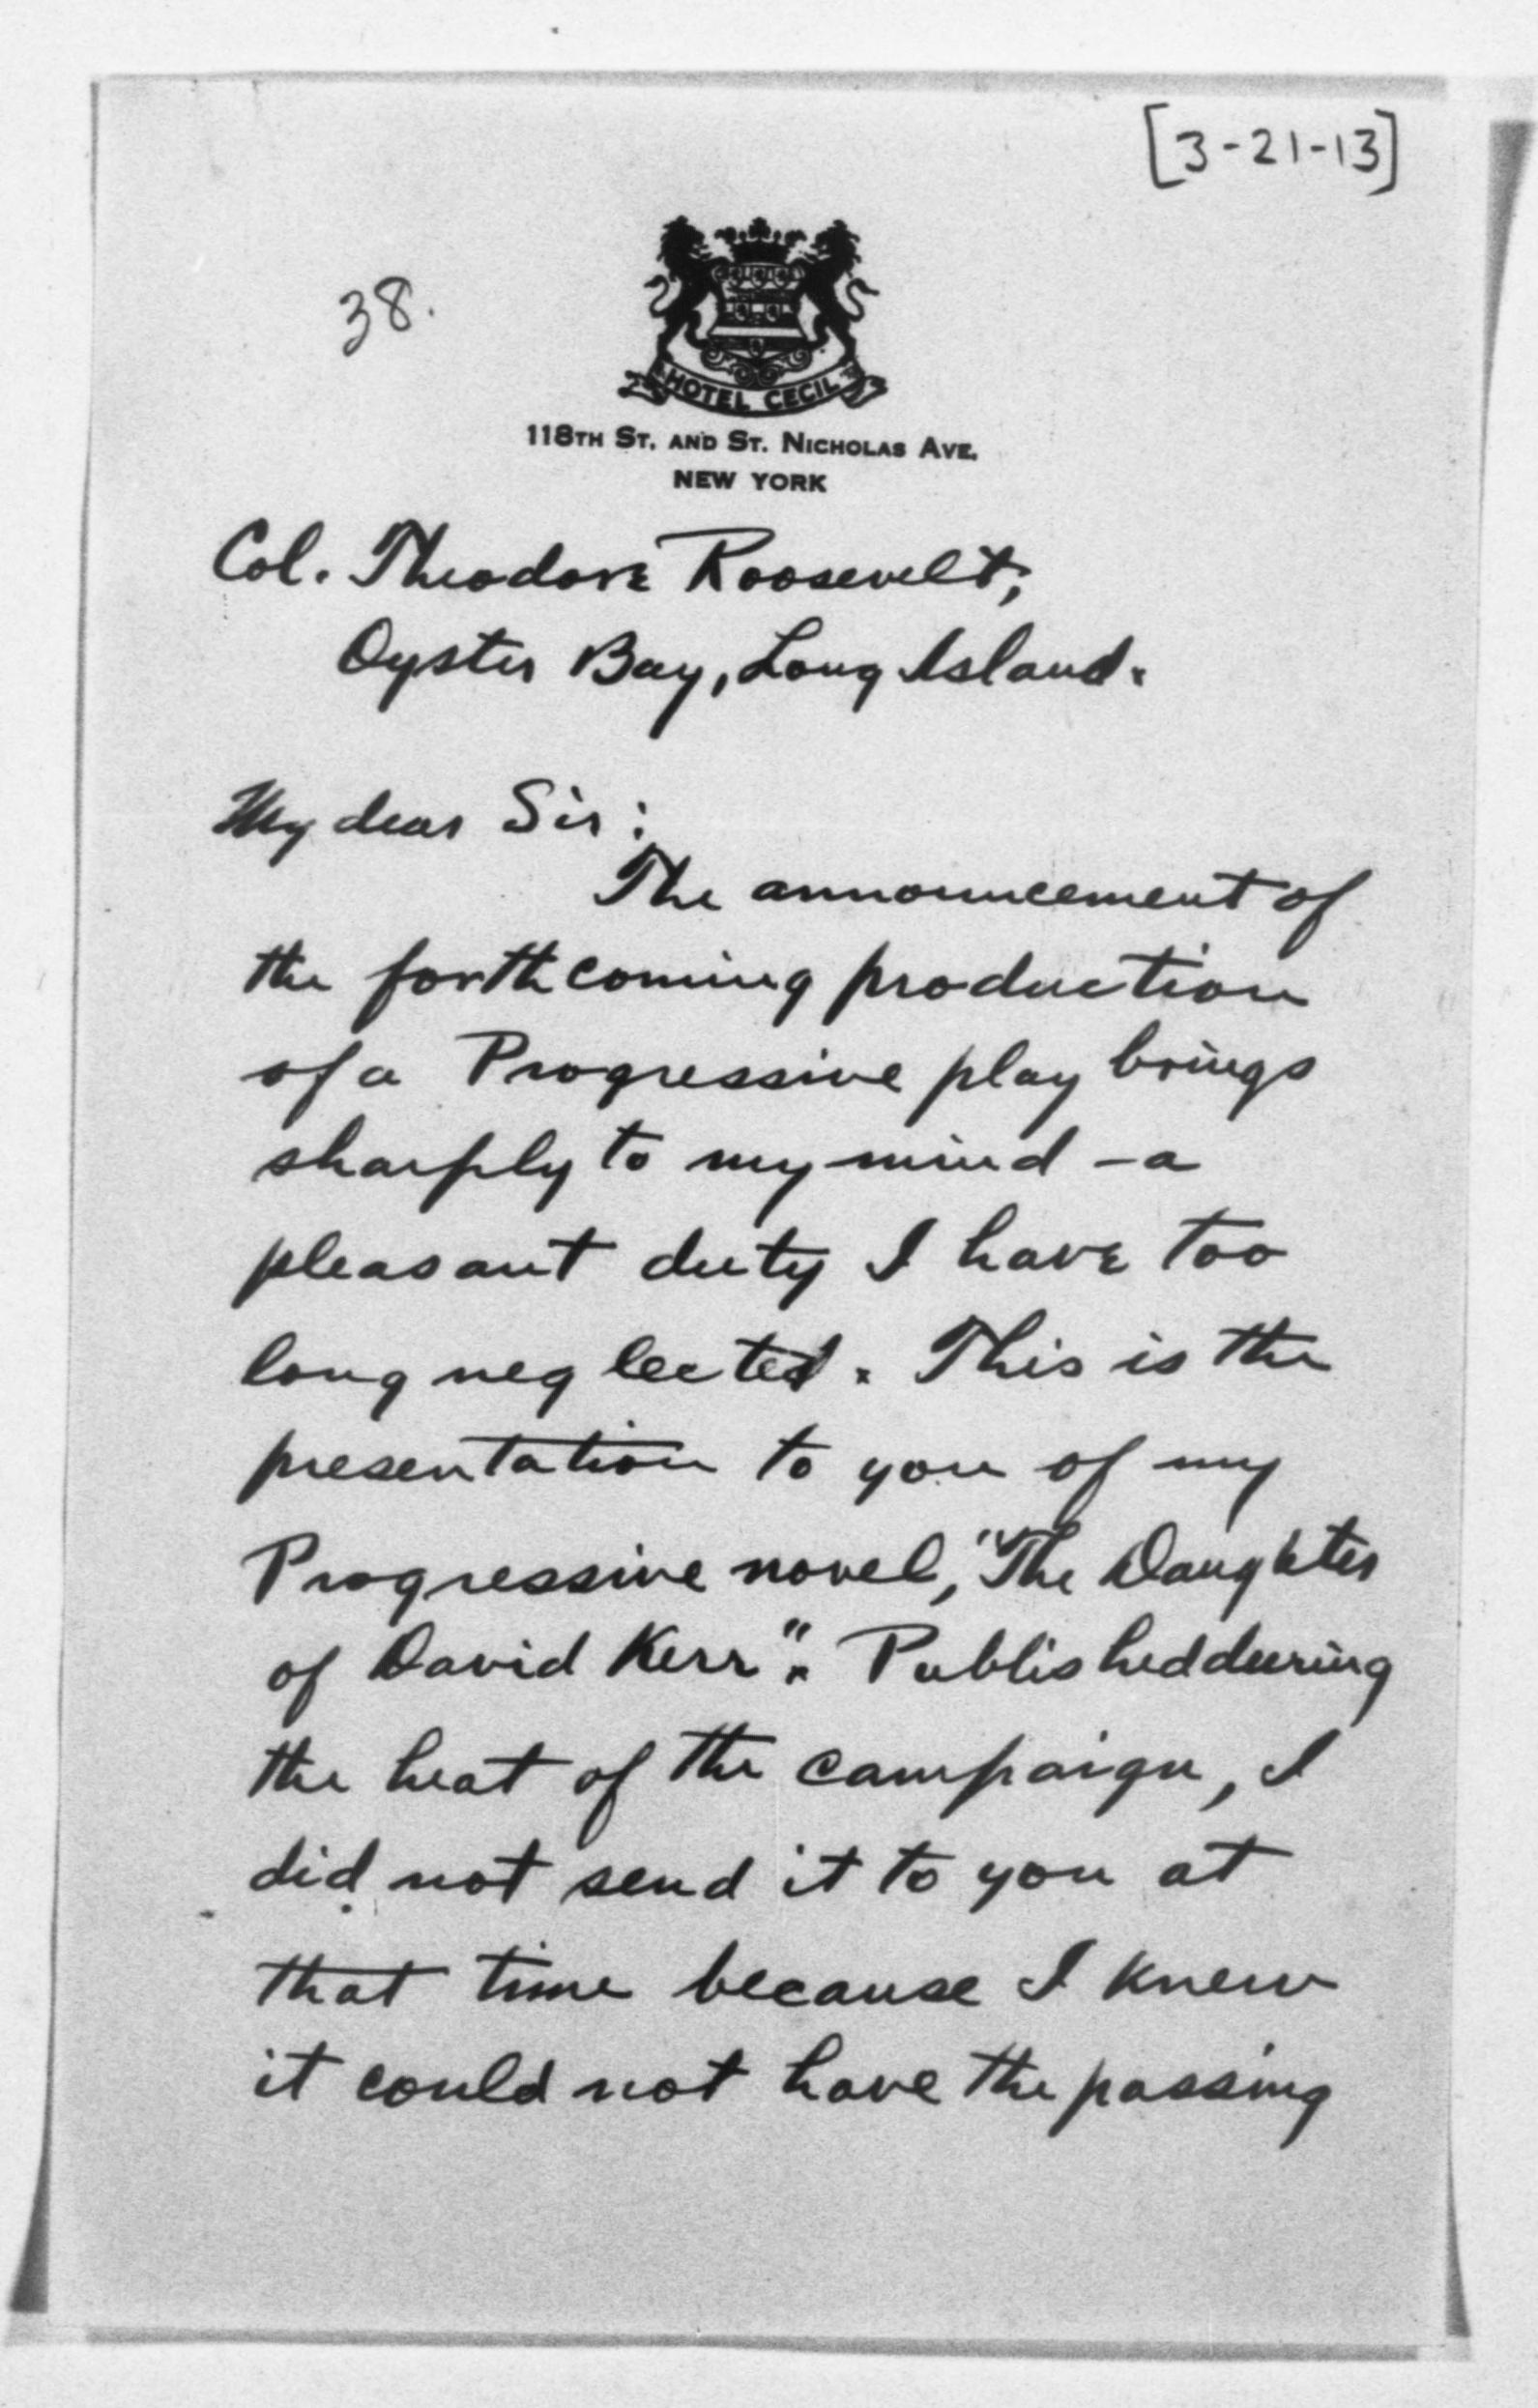 [3-21-13]
38.
HOTEL CECIL
118TH ST. AND ST. NICHOLAS AVE.
NEW YORK
Col. Theodore Roosevelt,
Oyster Bay, Long Island.
My dear Sir:
The announcement of
the forthcoming production
of a Progressive play brings
sharply to my mind - a
pleasant duty I have too
long neglected. This is the
presentation to you of my
Progressive novel, "The Daughter
of David Kerr". Published during
the heat of the campaign, I
did not send it to you at
that time because I knew
it could not have the passing